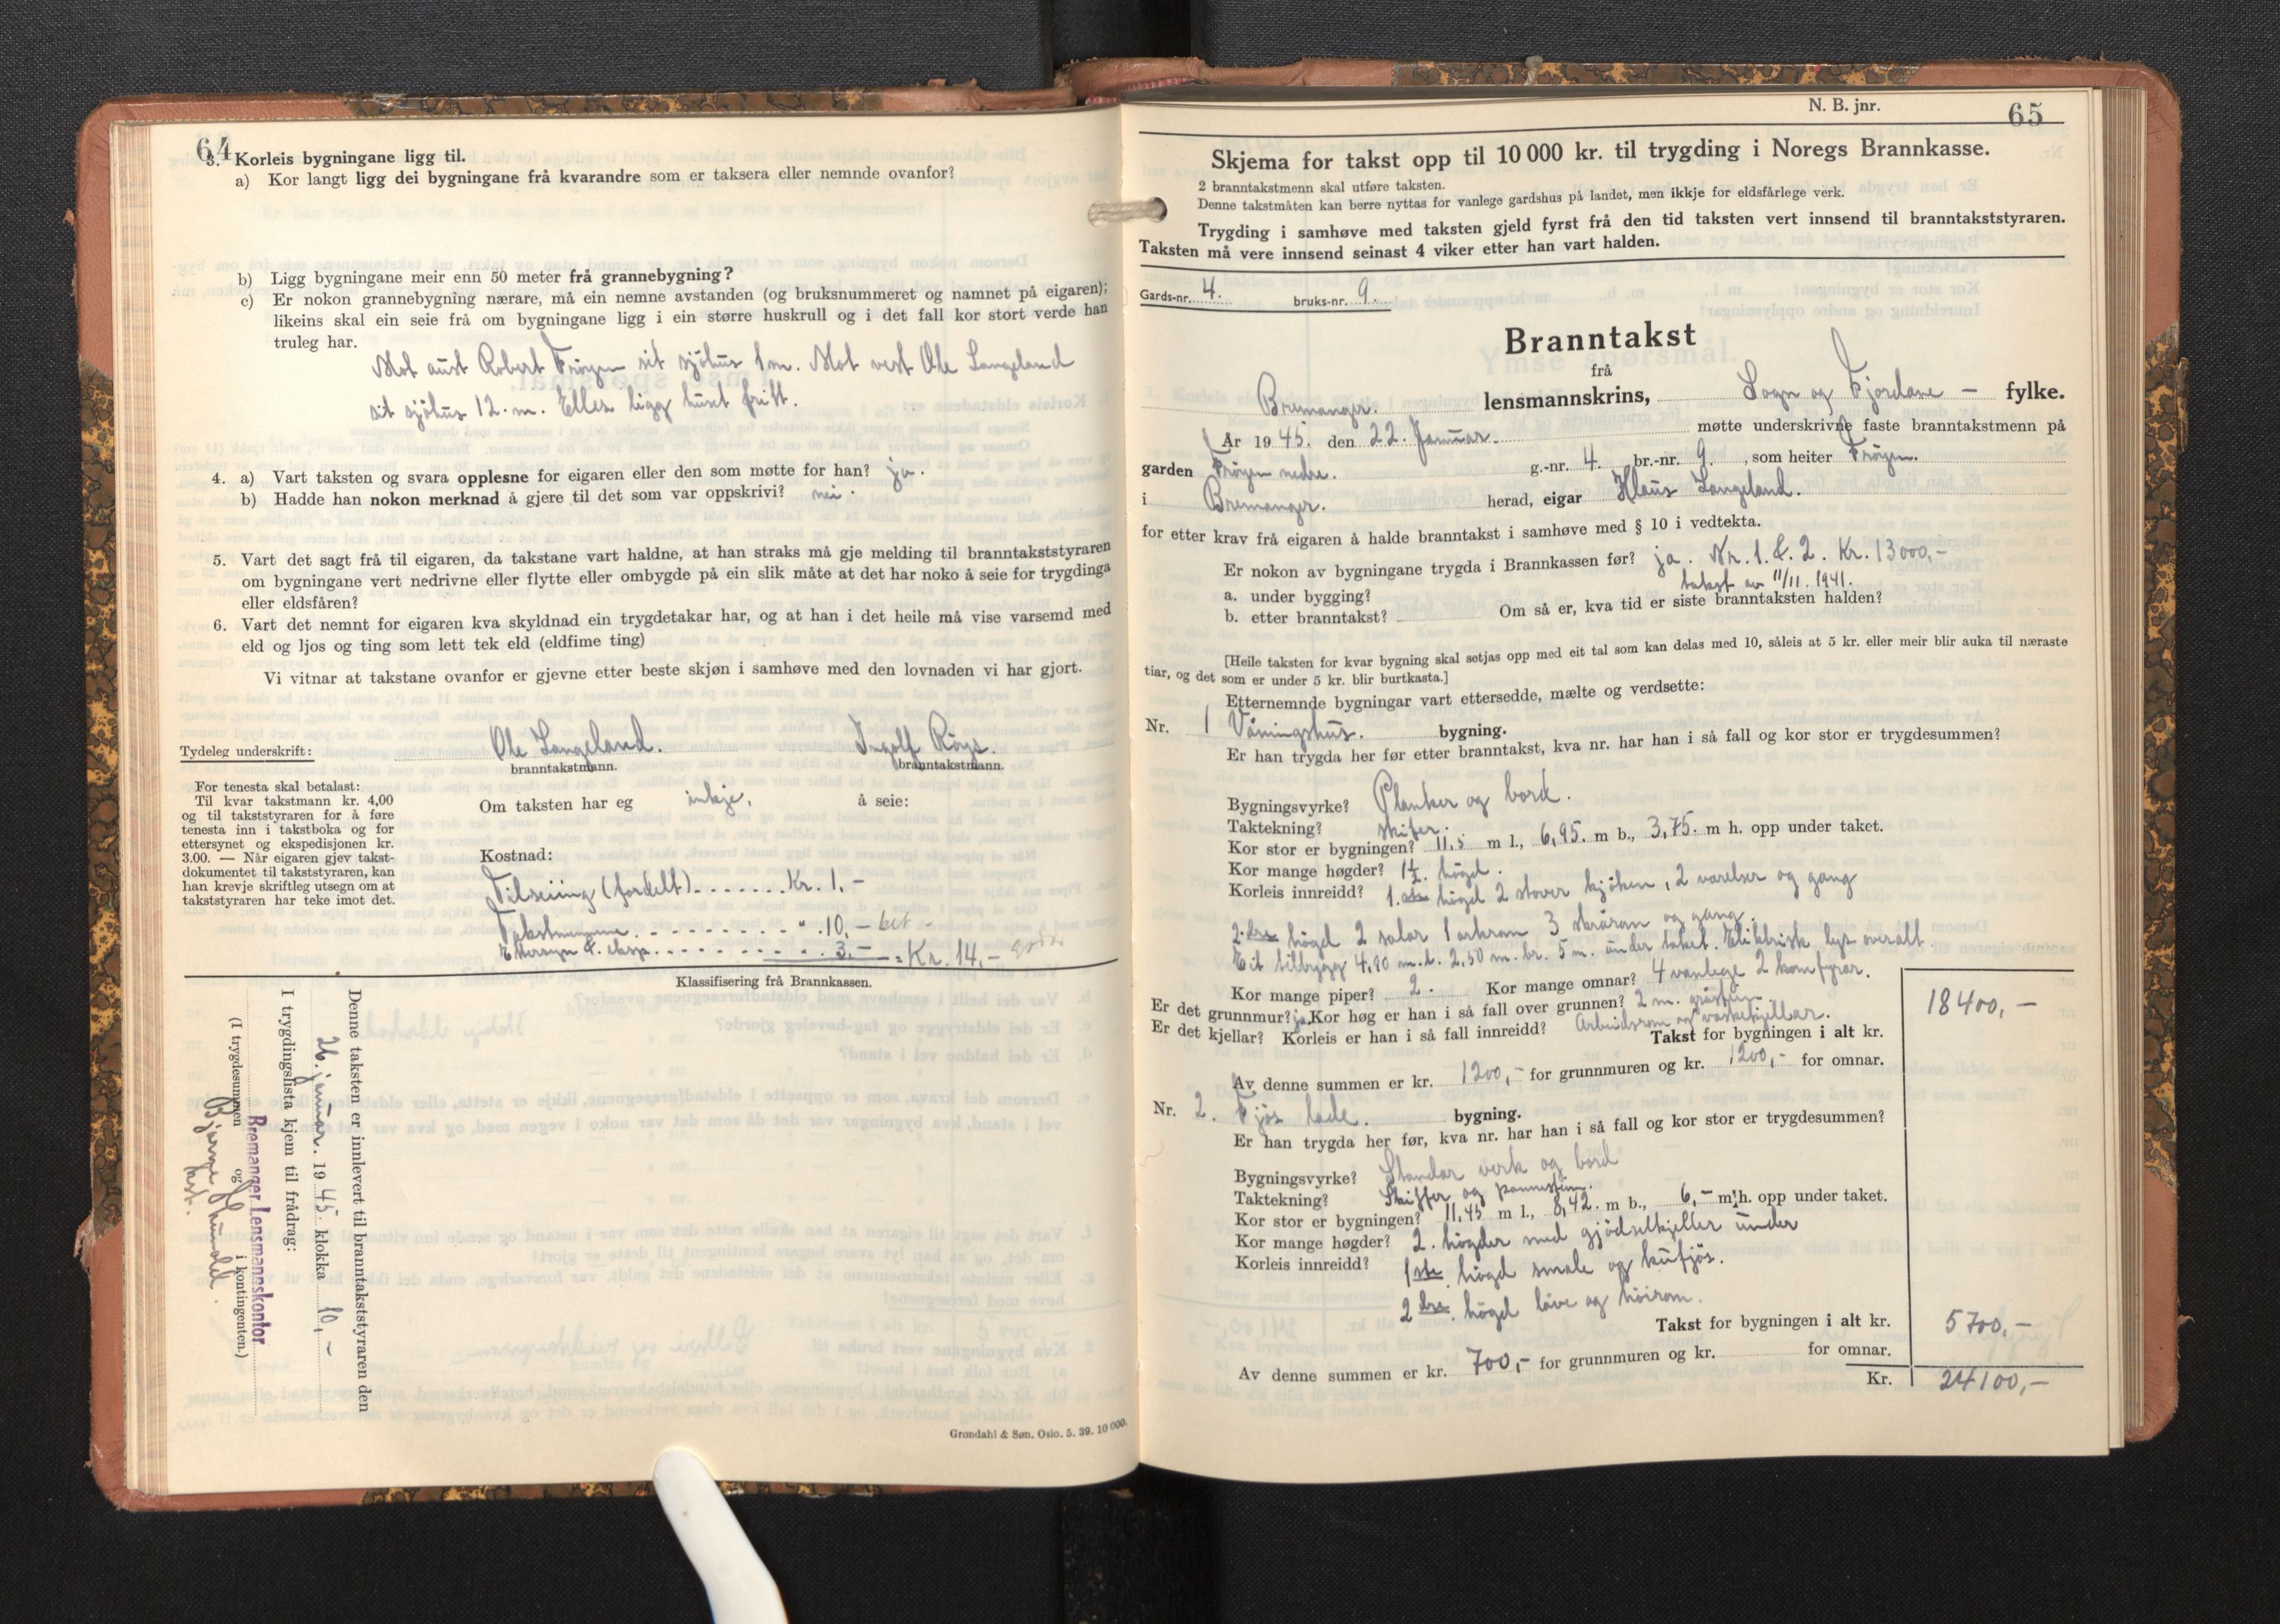 64
3. Korleis bygningane ligg til.
a) Kor langt ligg dei bygningane frå kvarandre som er taksera eller nemnde ovanfor?
b) Ligg bygningane meir enn 50 meter frå grannebygning?
c) Er nokon grannebygning nærare, må ein nemne avstanden (og bruksnummeret og namnet på eigaren);
likeins skal ein seie frå om bygningane ligg i ein større huskrull og i det fall kor stort verde han
truleg har.
Mot aust Robert Frøyen sit sjöhus 1 m. Mot vest Ole Langeland
sit sjöhus 12. m. Elles ligg huset fritt.
4. a) Vart taksten og svara opplesne for eigaren eller den som møtte for han? ja.
b) Hadde han nokon merknad å gjere til det som var oppskrivi? nei.
5. Vart det sagt frå til eigaren, da takstane vart haldne, at han straks må gje melding til branntakststyraren
om bygningane vert nedrivne eller flytte eller ombygde på ein slik måte at det har noko å seie for trygdinga
eller eldsfåren?
6. Vart det nemnt for eigaren kva skyldnad ein trygdetakar har, og at han i det heile må vise varsemd med
eld og ljos og ting som lett tek eld (eldfime ting)
Vi vitnar at takstane ovanfor er gjevne etter beste skjøn i samhøve med den lovnaden vi har gjort.
Tydeleg underskrift: Ole Langeland. Ingolf Röys.
branntakstmann. branntakstmann.
For tenesta skal betalast:
Til kvar takstmann kr. 4,00
og til takststyraren for å føre
tenesta inn i takstboka og for
ettersynet og ekspedisjonen kr.
3.00. — Når eigaren gjev takst-
dokumentet til takststyraren, kan
han krevje skriftleg utsegn om at
takststyraren har teke imot det.
Om taksten har eg inkje, å seie:
Kostnad:
Tilseiing (fordelt) . . . . . . . Kr. 1,-
Takstmennene . . . . . . . . . " . 10,- bet -
Ettersyn & eksp. . . . . . . . . . 3,- = Kr. 14,-
Klassifisering frå Brannkassen.
Denne taksten er innlevert til branntakststyraren den
26. januar. 1945. klokka 10,-
I trygdingslista kjem til frådrag:
Bremanger Lensmannskontor
(I trygdesummen og i kontingenten.)
Grøndahl & Søn, Oslo. 5. 39. 10 000.
N. B. jnr.
65
Skjema for takst opp til 10 000 kr. til trygding i Noregs Brannkasse.
2 branntakstmenn skal utføre taksten.
Denne takstmåten kan berre nyttas for vanlege gardshus på landet, men ikkje for eldsfårlege verk.
Trygding i samhøve med taksten gjeld fyrst frå den tid taksten vert innsend til branntakststyraren.
Taksten må vere innsend seinast 4 viker etter han vart halden.
Gards-nr. 4. bruks-nr. 9.
Branntakst
frå
Bremanger. lensmannskrins, Sogn og Fjordane - fylke.
År 1945. den 22. Januar. møtte underskrivne faste branntakstmenn på
garden Fröyen nedre. g.-nr. 4. br.-nr. 9. , som heiter Fröyen.
i Bremanger. herad, eigar Klaus Langeland.
for etter krav frå eigaren å halde branntakst i samhøve med § 10 i vedtekta.
Er nokon av bygningane trygda i Brannkassen før? ja. Nr. 1. & 2. Kr. 13000,-
takst av 11/11. 1941.
a. under bygging?
b. etter branntakst? Om så er, kva tid er siste branntaksten halden?
[Heile taksten for kvar bygning skal setjas opp med eit tal som kan delas med 10, såleis at 5 kr. eller meir blir auka til næraste
tiar, og det som er under 5 kr. blir burtkasta.]
Etternemnde bygningar vart ettersedde, mælte og verdsette:
Nr. 1 Våningshus. bygning.
Er han trygda her før etter branntakst, kva nr. har han i så fall og kor stor er trygdesummen?
Bygningsvyrke? Planker og bord.
Taktekning? skifer.
Kor stor er bygningen? 11.5 m l., 6,95. m b., 3,75. m h. opp under taket.
Kor mange høgder? 1½. högd.
Korleis innreidd? 1.ste högd 2 stover kjöken, 2 varelser og gang
2. dre högd 2 salar 1 arkrom 3 skårom og gang.
Eit tilbygg 4,90 m.l. 2,50 m. br. 5 m. under taket. Elektrisk lys overalt.
Kor mange piper? 2. Kor mange omnar? 4 vanlege 2 komfyrar.
Er det grunnmur? ja. Kor høg er han i så fall over grunnen? 2 m. gråstein.
Er det kjellar? Korleis er han i så fall innreidd? Arbeidsrom og vaskekjellar.
Takst for bygningen i alt kr. 18400,-
Av denne summen er kr. 1200,- for grunnmuren og kr. 1200,- for omnar.
Nr. 2. Fjös lade. bygning.
Er han trygda her før, kva nr. har han i så fall og kor stor er trygdesummen?
Bygningsvyrke? Standar verk og bord
Taktekning? Skiffer og pannestein.
Kor stor er bygningen? 11,45 m l., 8,42. m b., 6,- m h. opp under taket.
Kor mange høgder? 2. högder med gjödselkjeller under
Korleis innreidd? 1ste högd smale og kufjös.
2 dre. högd löve og höirom.
Takst for bygningen i alt kr. 5700,-
Av denne summen er kr. 700,- for grunnmuren og kr. for omnar.
Kr. 24100,-